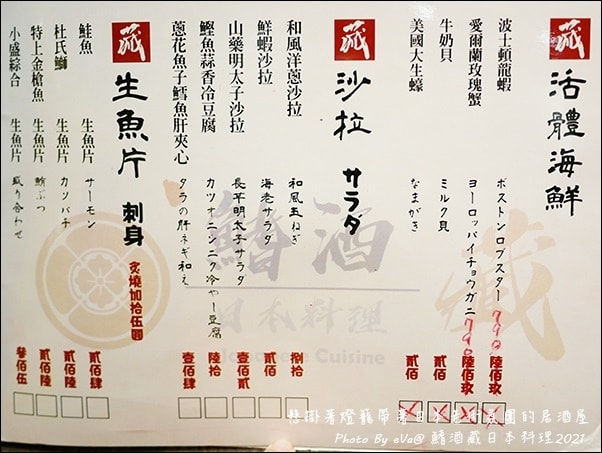 藏 活體海鮮
波士頓龍蝦 ボストンロブスター 790 陸佰玖
愛爾蘭玫瑰蟹 ヨーロッパイチョウガニ 790 陸佰玖
牛奶貝 ミルク貝 貳佰
美國大生蠔 なまがき 貳佰
藏 沙拉 サラダ
和風洋蔥沙拉 和風玉ねぎ 捌拾
鮮蝦沙拉 海老サラダ 貳佰
山藥明太子沙拉 長芋明太子サラダ 壹佰貳
鰹魚蒜香冷豆腐 カツオニンニク冷やー豆腐 陸拾
蔥花魚子鱈魚肝夾心 タラの肝ネギ和え 壹佰肆
藏 生魚片 刺身 炙燒加拾伍圓
鮭魚 生魚片 サーモン 貳佰肆
杜氏鰤 生魚片 カツパチ 貳佰陸
特上金槍魚 生魚片 鮪ぶつ 貳佰陸
小盛綜合 生魚片 盛り合わせ 參佰伍
鰭酒 藏
日本料理
Cuisine
懸掛著燈籠帶著日本老街氛圍的居酒屋
Photo By eVa@ 鰭酒藏日本料理2021